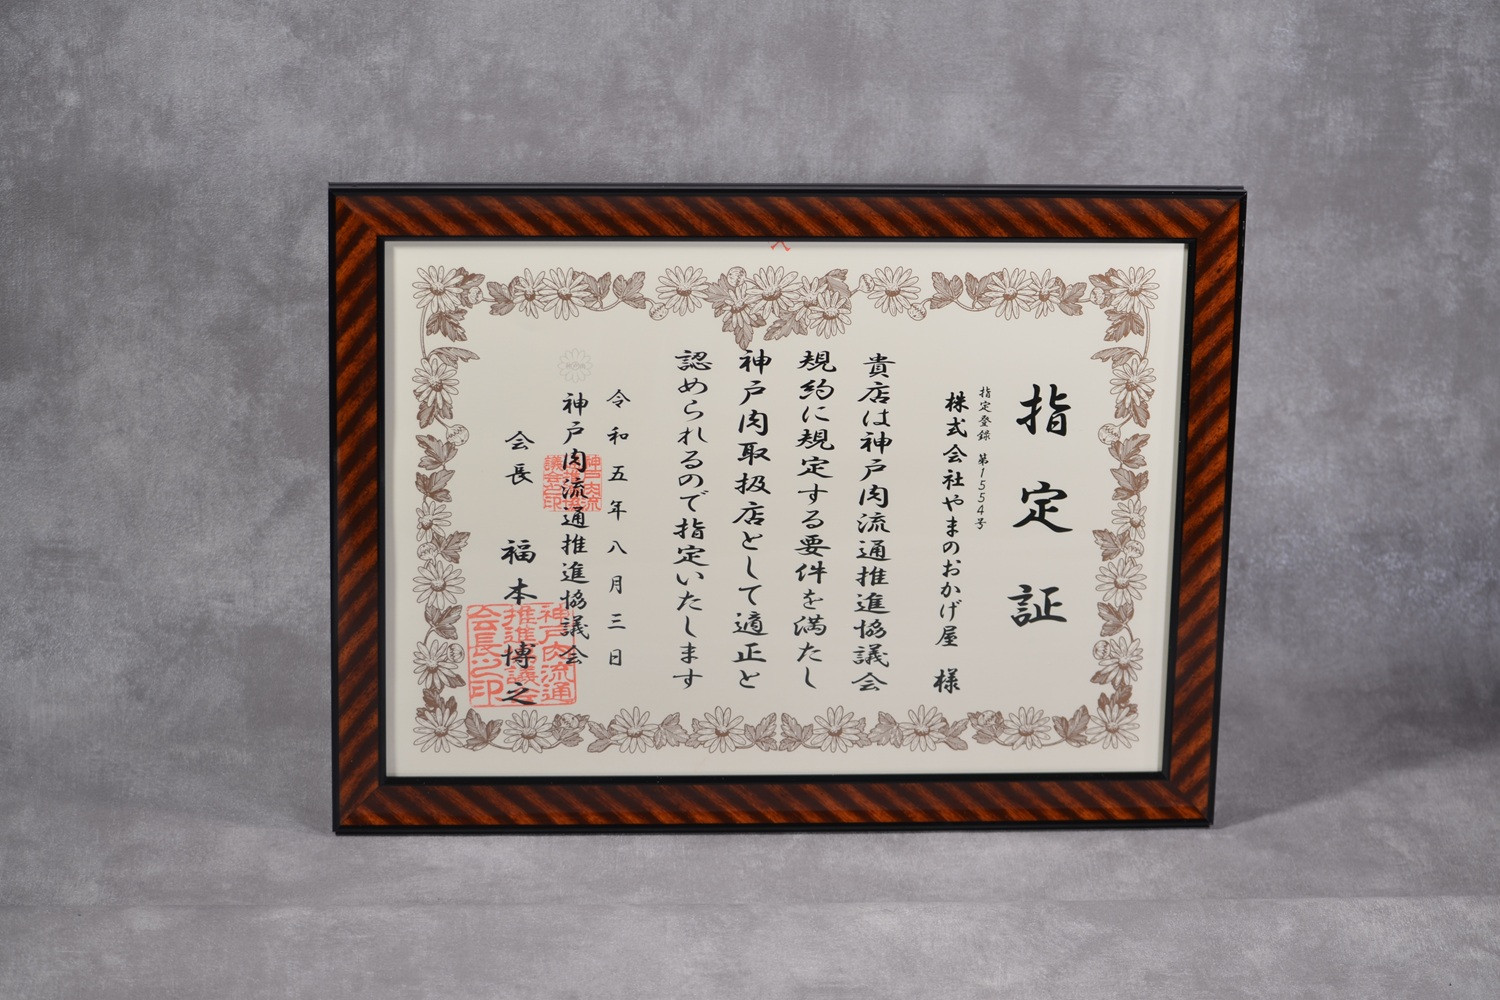 指定証
指定登録 第1554号
株式会社やまのおかげ屋 様
貴店は神戸肉流通推進協議会
規約に規定する要件を満たし
神戸肉取扱店として適正と
認められるので指定いたします
令和五年八月三日
神戸肉流通推進協議会
会長 福本博之
神戸肉流通
推進協議会
会長之印